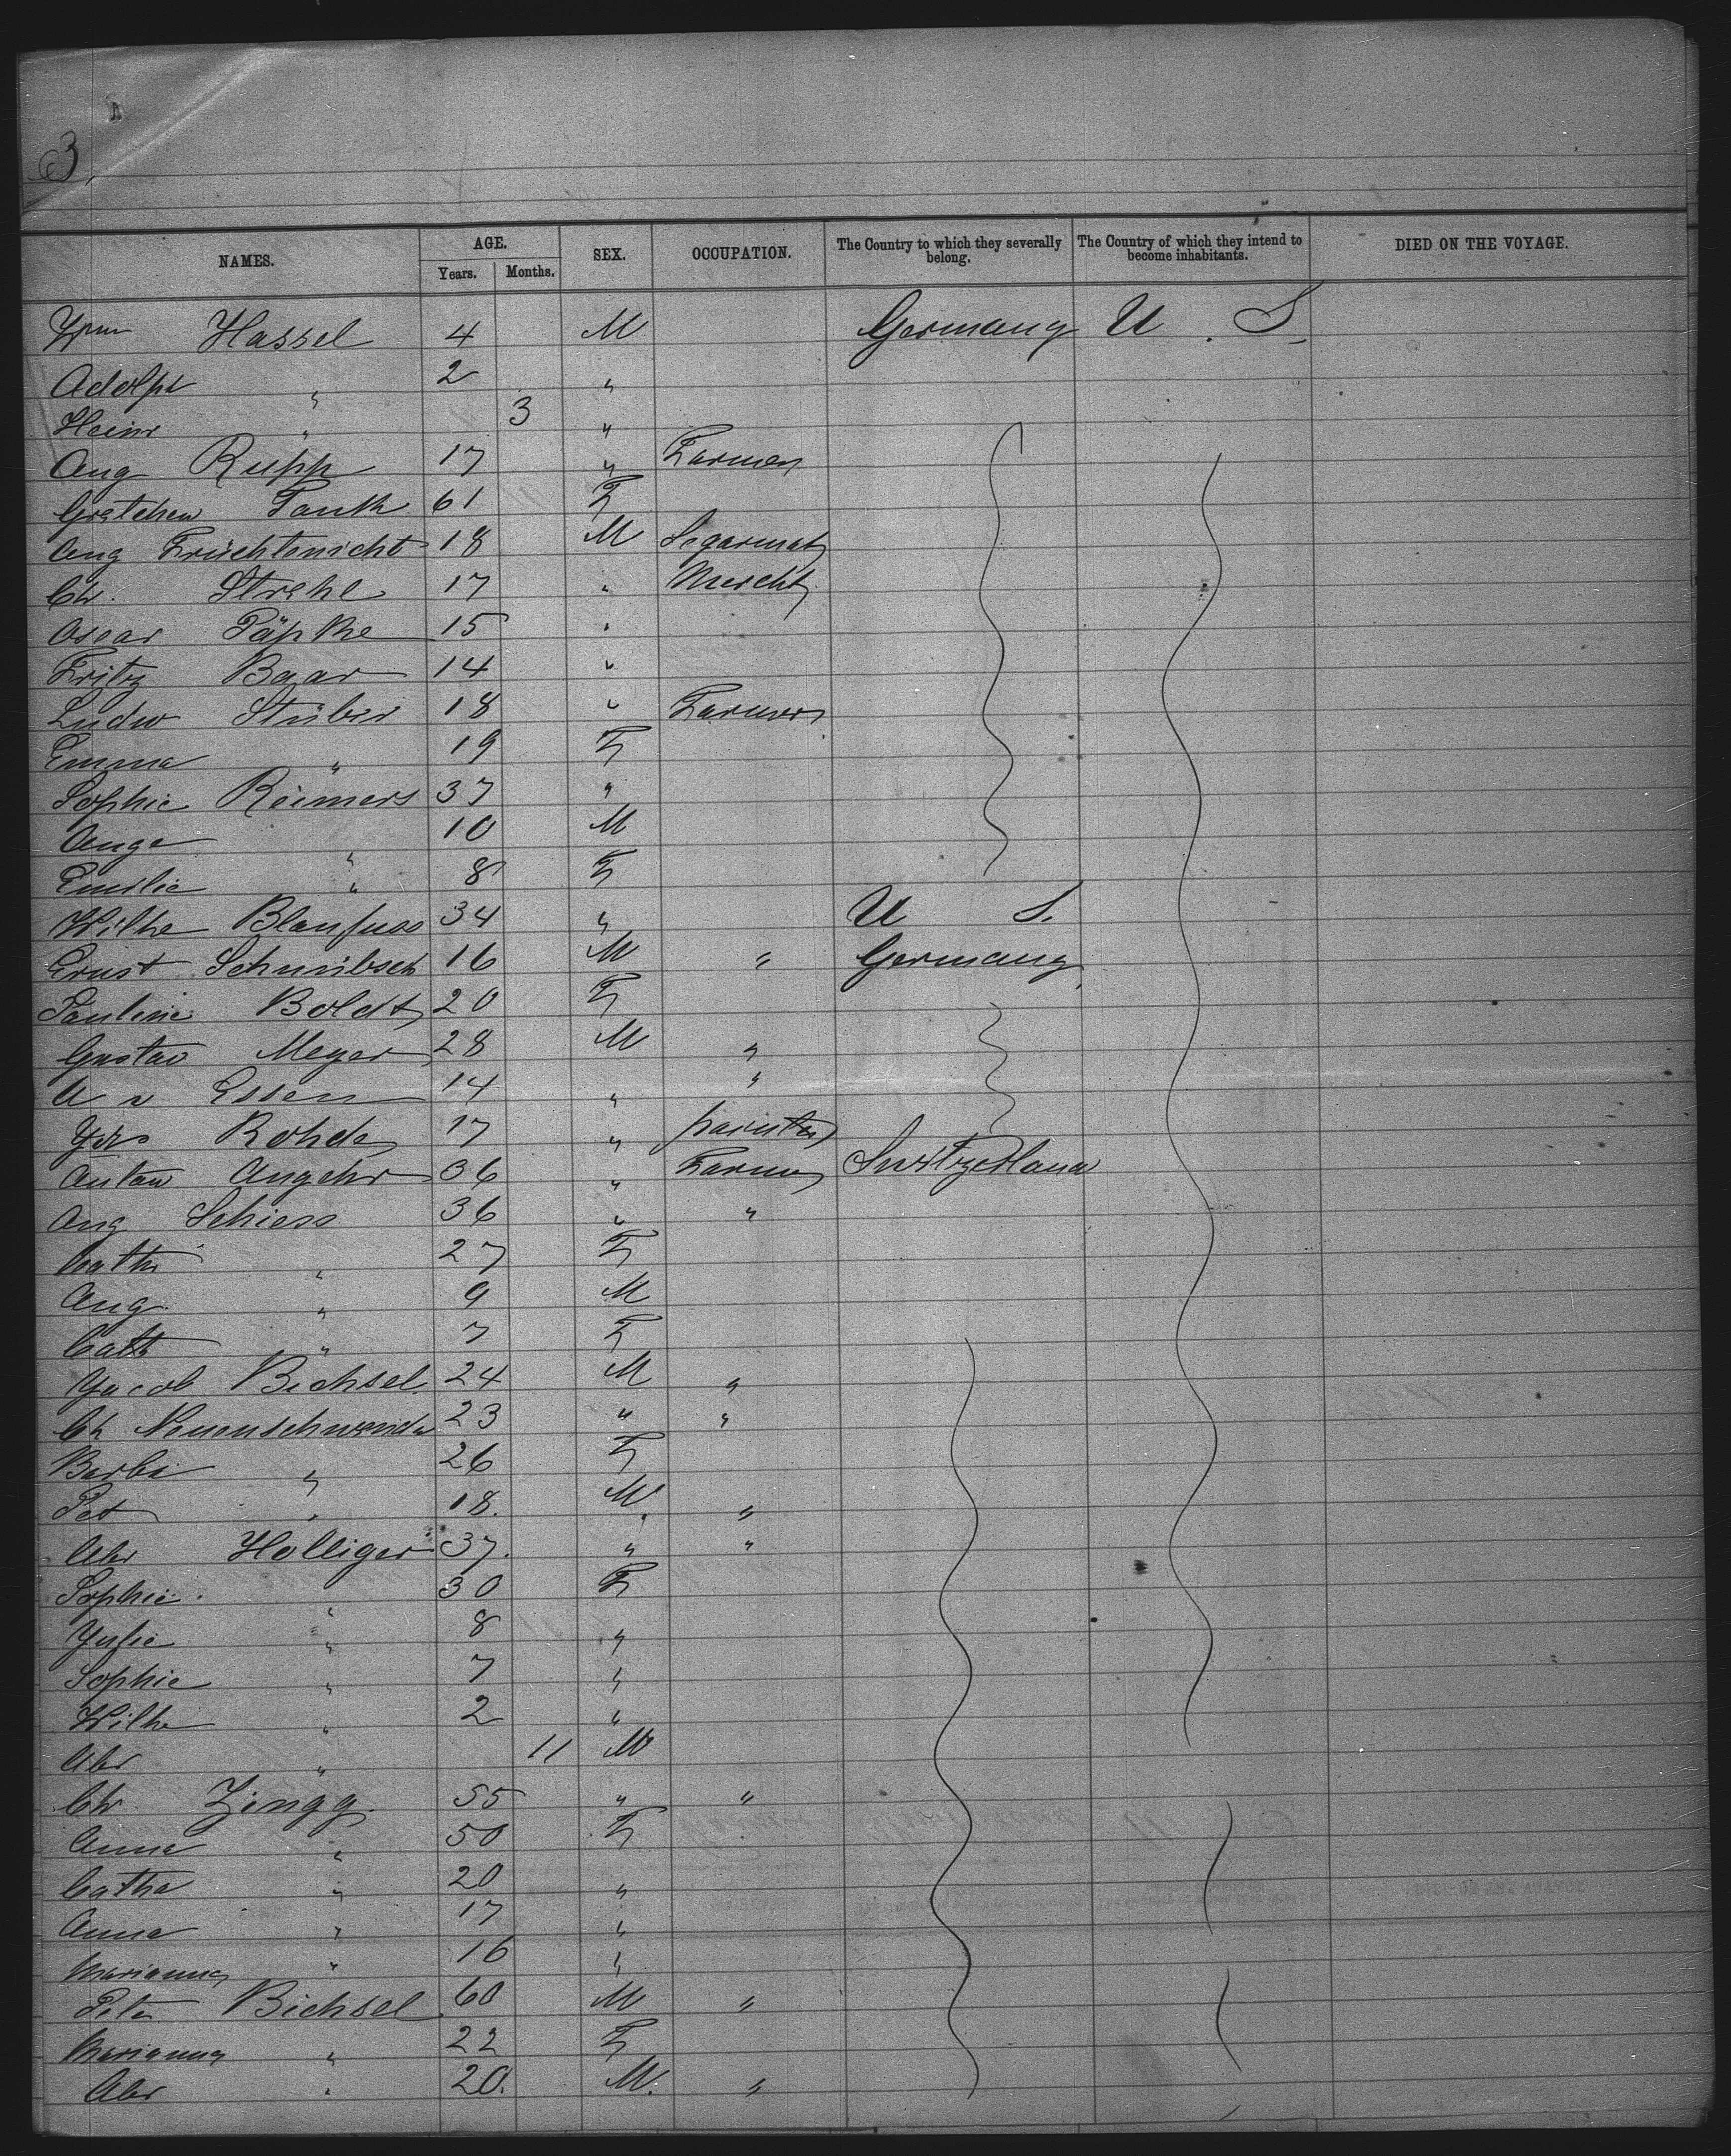 3.
NAMES. AGE. Years. Months. SEX. OCCUPATION. The Country to which they severally belong. The Country of which they intend to become inhabitants. DIED ON THE VOYAGE.
Hassel 4 M Germany U. S.
Adolph " 2 "
Heinr " 3 "
Aug Rupp 17 " Farmer
Gretchen Tank 61 F
Aug Früchtenicht 18 M Segarmak
Ch. Strehl 17 " Mercht
Oscar Päpke 15 "
Fritz Baar 14 "
Ludw Stüber 18 " Farmer
Emma " 19 F
Sophie Reimers 37 "
Auge " 10 M
Emilie " 8 F
Wilhe Blanfuss 34 " U S.
Ernst 16 M " Germany
Pauline Boldt 20 F
Gustav Meyer 28 M "
A v Essen 14 " "
Rohde 17 " painter
Anton Angehr 36 " Farmer Switzerland
Aug Schiess 36 " "
Cath " 27 F
Aug. " 9 M
Cath " 7 F
Yacob Bichsel 24 M "
Ch Neuenschwande 23 " "
Barba " 26 F
Pet " 18. M "
Abr Holliger 37. " "
Sophie. " 30 F
Yulie " 8 "
Sophie " 7 "
Wilhe " 2 "
Abr " 11 M
Ch Zingg. 55 " "
Anna " 50 F
Catha " 20 "
Anna " 17 "
Marianna " 16 "
Peter Bichsel 60 M "
Marianna " 22 F
Abr " 20. M. "